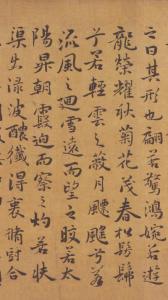 之曰其形也翩若驚鴻婉若遊
龍榮耀秋菊花茂春松髣髴
兮若輕雲之蔽月飄颻兮若
流風之迴雪遠而望之皎若太
陽昇朝霞迫而察之灼若芙
渠出渌波醲纖得衷脩短合